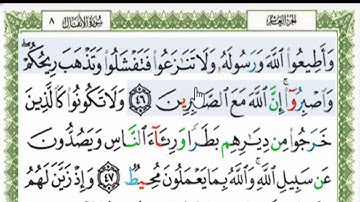 الجزء العاشر سورة الأنفال ٨
وَأَطِيعُوا۟ ٱللَّهَ وَرَسُولَهُۥ وَلَا تَنَٰزَعُوا۟ فَتَفْشَلُوا۟ وَتَذْهَبَ رِيحُكُمْ ۖ
وَٱصْبِرُوٓا۟ ۚ إِنَّ ٱللَّهَ مَعَ ٱلصَّٰبِرِينَ ﴿٤٦﴾ وَلَا تَكُونُوا۟ كَٱلَّذِينَ
خَرَجُوا۟ مِن دِيَٰرِهِم بَطَرًا وَرِئَآءَ ٱلنَّاسِ وَيَصُدُّونَ
عَن سَبِيلِ ٱللَّهِ ۚ وَٱللَّهُ بِمَا يَعْمَلُونَ مُحِيطٌ ﴿٤٧﴾ وَإِذْ زَيَّنَ لَهُمُ